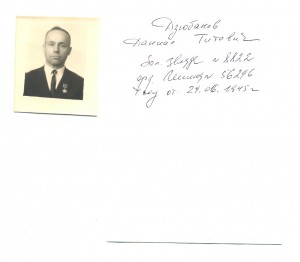 Дзюбанов
Даниил Титович
Зол. Звезда N 8822
орд Ленина N 56296
Указ от 24.06.1945 г